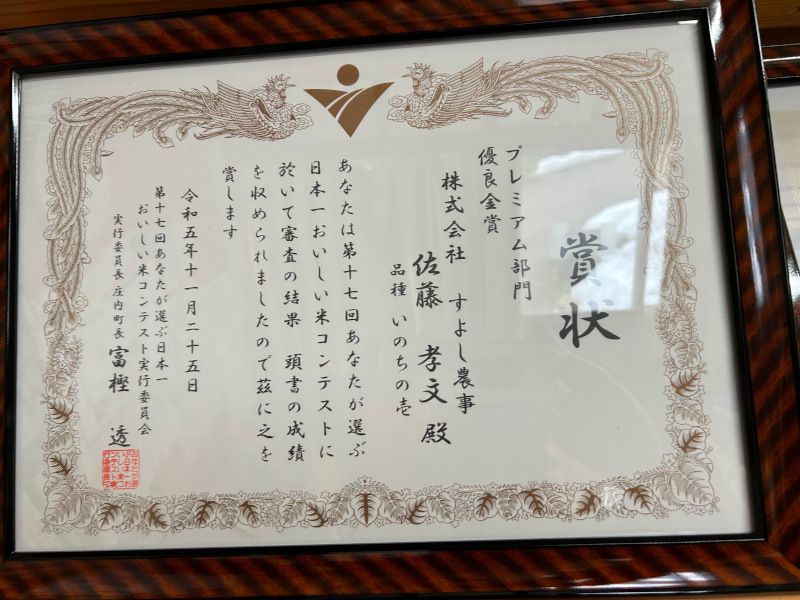 賞状
プレミアム部門
優良金賞
株式会社 すよし農事
佐藤 孝文 殿
品種 いのちの壱
あなたは第十七回あなたが選ぶ
日本一おいしい米コンテストに
於いて審査の結果 頭書の成績
を収められましたので茲に之を
賞します
令和五年十一月二十五日
第十七回あなたが選ぶ日本一
おいしい米コンテスト実行委員会
実行委員長庄内町長 富樫 透